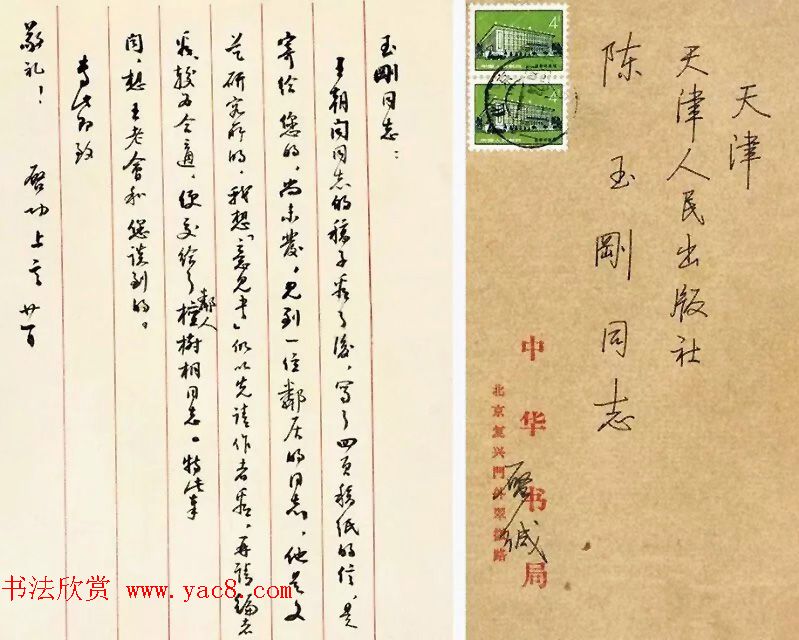 玉剛同志：
王朝闻同志的稿子看了後，寫了四页稿纸的信，是
寄给您的，尚未發，見到一位鄰居的同志，他是文
艺研究所的，我想「意见书」似以先请作者看，再请编者
看，较为合適，便交给了鄰人
樹相同志。特此奉
闻，想王老會和您谈到的。
专此即致
敬礼！ 啓功上言 廿日
天津
天津人民出版社
陈玉剛同志
中华书局
北京复兴門外翠微路
啓缄
4
4
书法欣赏 www.yac8.com